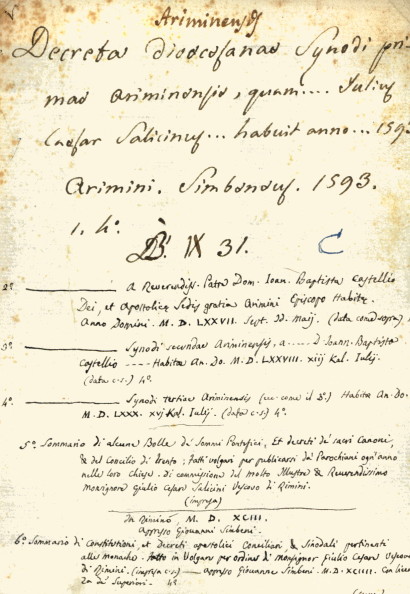 Ariminensis
Decreta dioecesanae Synodi pri
mae Ariminensis, quam.... Julius
Caesar Salicinus... habuit anno... 159
Arimini. Simbeneus. 1593.
1. 4°.
IX 31. C
2° ——— A Reverendiss. Patre Dom. Ioan. Baptista Castellio
Dei, et Apostolicae Sedis gratia Arimini Episcopo Habitae.
Anno Domini. M. D. LXXVII. Sept. Id. Maij. (data come sopra)
3° ——— Synodi secundae Ariminensis, a ----- d. Ioann. Baptista
Castellio ---- Habitae An. Do. M. D. LXXVIII. xiij Kal. Iulij.
(data c.s.) 4°.
4° ——— Synodi tertiae Ariminensis (ec. come il 3°.) Habitae An. Do.
M. D. LXXX. xvj Kal. Iulij. (data c.s.) 4°.
5° Sommario di alcune Bolle de' Sommi Pontefici, et decreti de' sacri Canoni,
& del Concilio di Trento; fatti volgari per publicarsi da' Parochiani ogni anno
nelle loro Chiese di commissione del Molto Illustre & Reverendissimo
Monsignore Giulio Cesare Salicini Vescovo di Rimini.
(impresa)
In Rimino, M. D. XCIII.
Appresso Giovanni Simbeni.
6° Sommario di Constitutioni, et decreti apostolici Conciliari & Sinodali pertinenti
alle monache. fatto in Volgare per ordine di monsignor Giulio Cesare Vescovo
di Rimini. (impresa c.s.) — Appresso Giovanne Simbeni. M. D. XCIIII. Con licen
za de' Superiori. 4°.